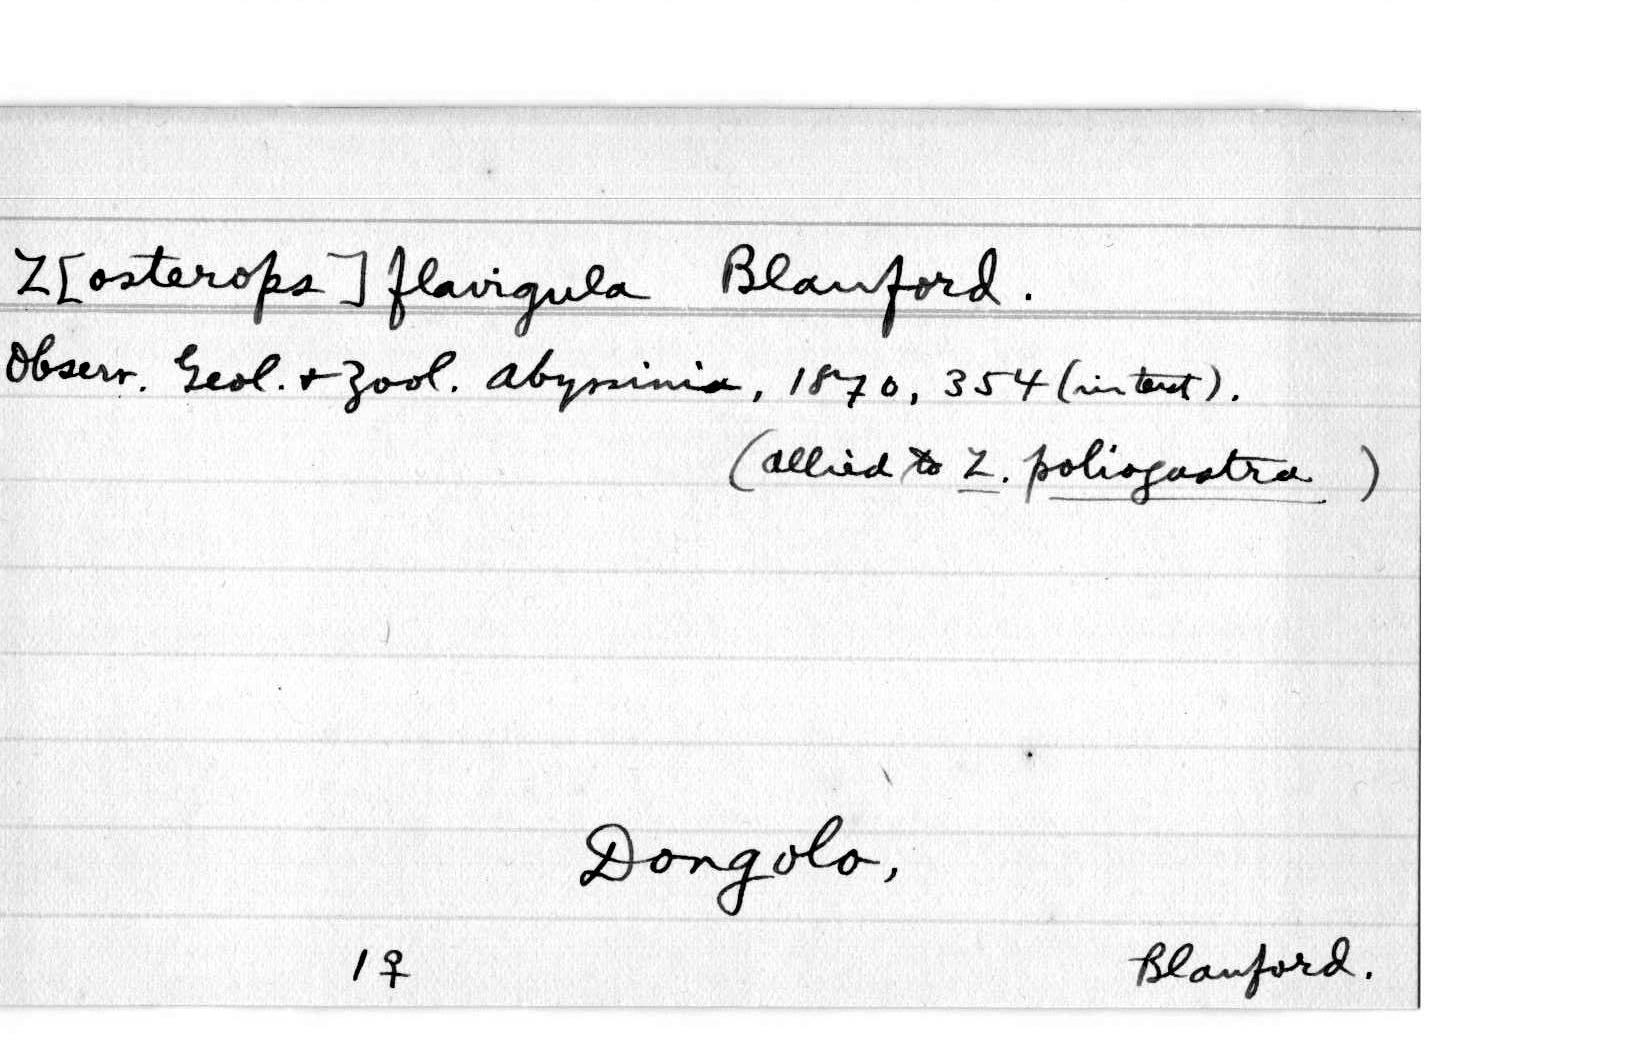 Z[osterops] flavigula Blanford.
Observ. Geol. + Zool. Abyssinia, 1870, 354 (in text).
(allied to Z. poliogastra)
Dongolo,
1 ♀ Blanford.